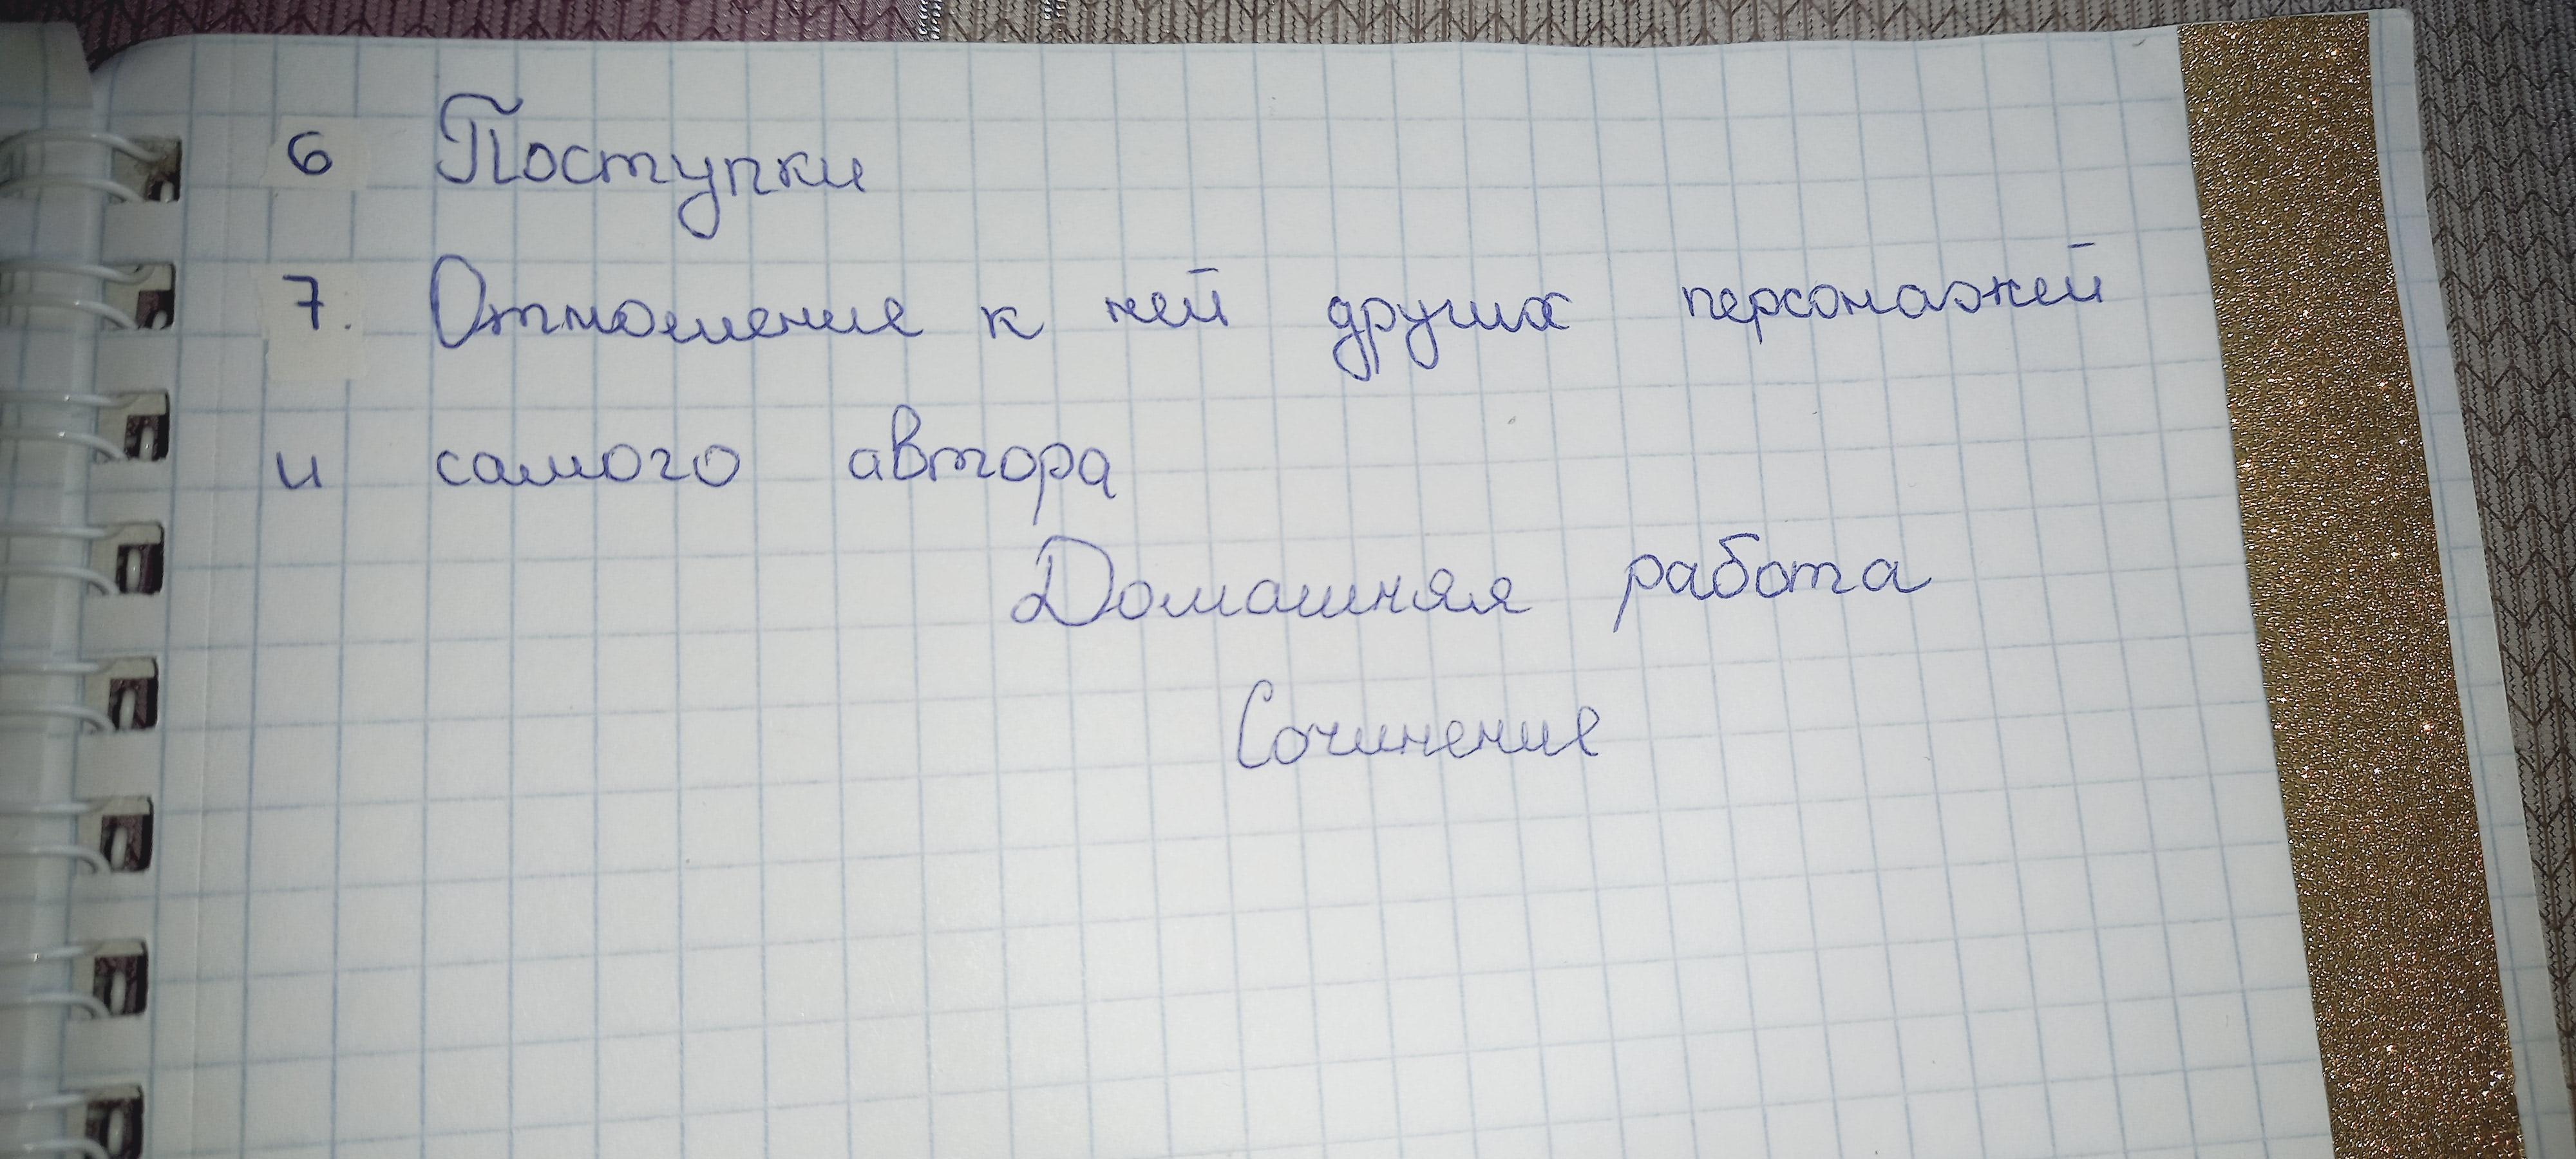 6 Поступки
7. Отношение к ней других персонажей
и самого автора
Домашняя работа
Сочинение